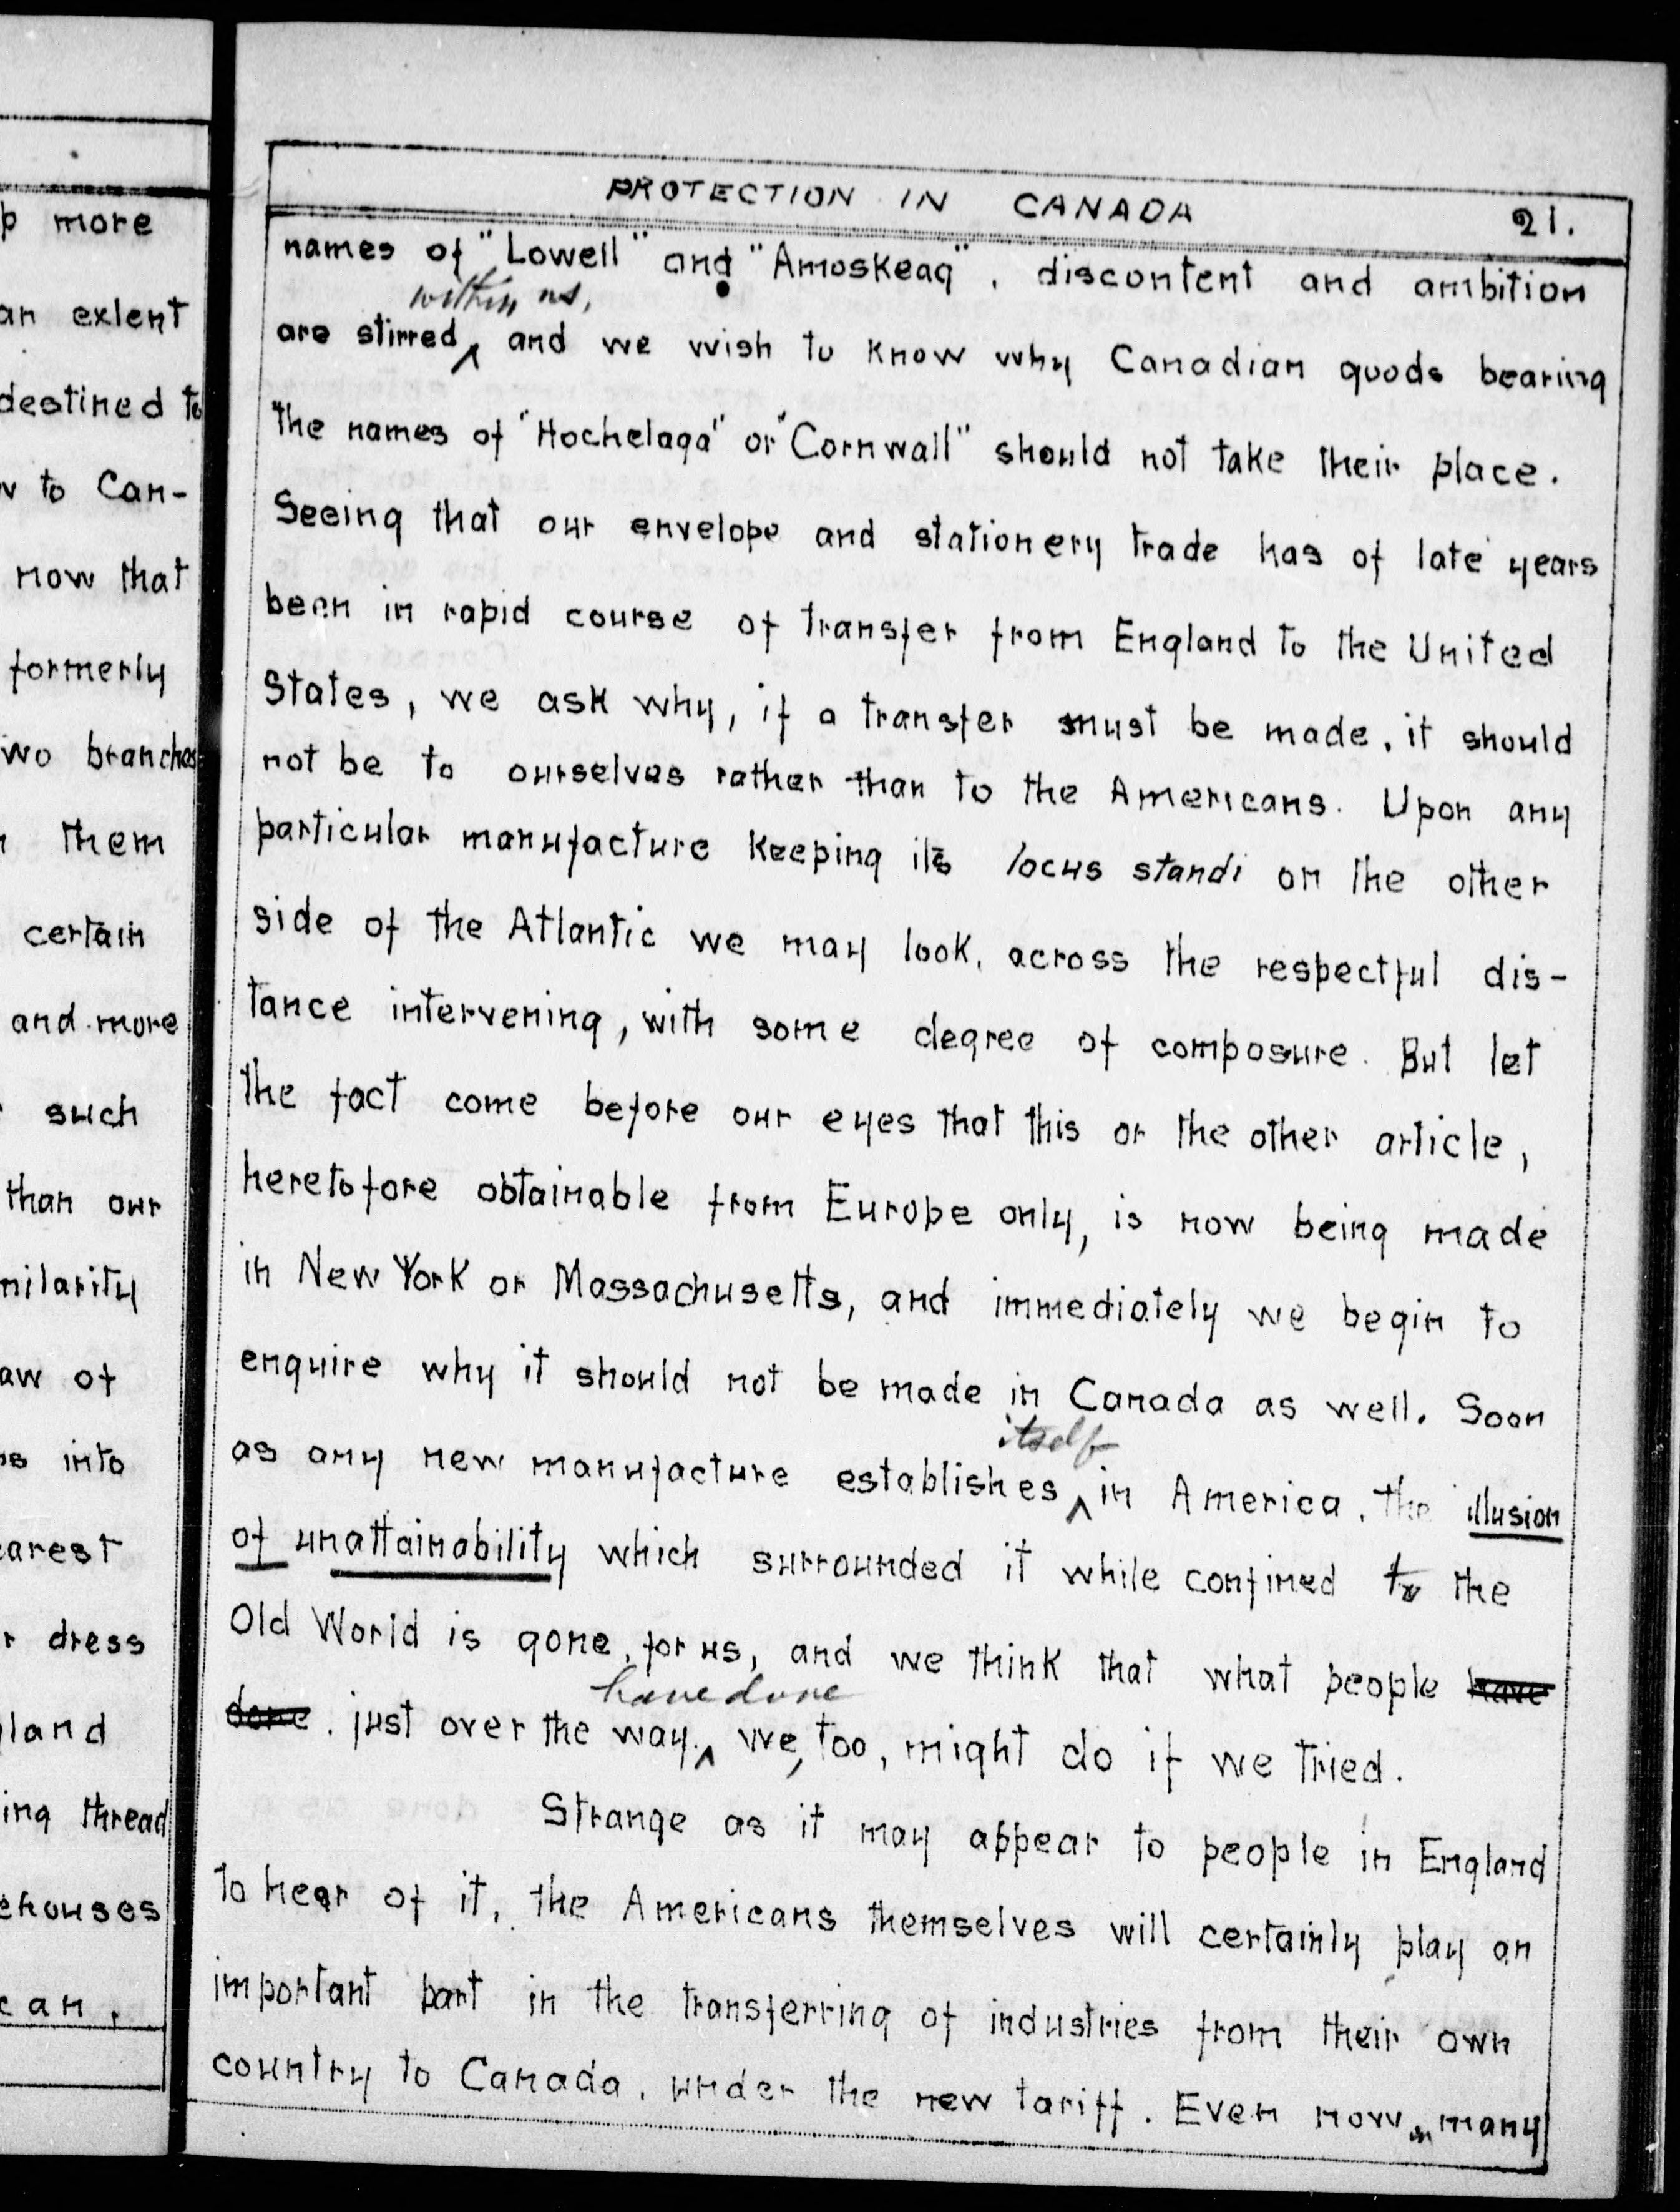 p more
an extent
destined to
w to Can-
now that
formerly
two branches
them
certain
and more
such
than our
milarity
aw of
into
earest
dress
land
ing thread
ehouses
can.
PROTECTION IN CANADA 21.
names of "Lowell" and "Amoskeag", discontent and ambition
within us,
are stirred ^ and we wish to know why Canadian goods bearing
the names of "Hochelaga" or "Cornwall" should not take their place.
Seeing that our envelope and stationery trade has of late years
been in rapid course of transfer from England to the United
States, we ask why, if a transfer must be made, it should
not be to ourselves rather than to the Americans. Upon any
particular manufacture keeping its locus standi on the other
side of the Atlantic we may look, across the respectful dis-
tance intervening, with some degree of composure. But let
the fact come before our eyes that this or the other article,
heretofore obtainable from Europe only, is now being made
in New York or Massachusetts, and immediately we begin to
enquire why it should not be made in Canada as well. Soon
itself
as any new manufacture establishes ^ in America, the illusion
of unattainability which surrounded it while confined to the
Old World is gone, for us, and we think that what people have
have done
done just over the way, ^ we, too, might do if we tried.
Strange as it may appear to people in England
to hear of it, the Americans themselves will certainly play an
important part in the transferring of industries from their own
country to Canada, under the new tariff. Even now, in many